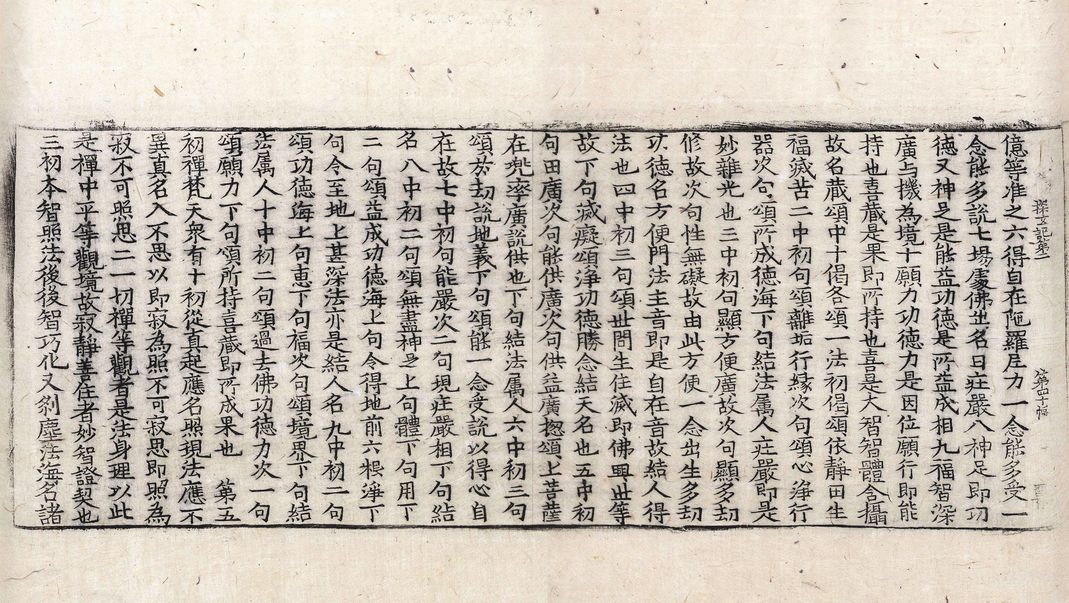 億等准之六得自在陁羅尼力一念能多受一
念能多說七場處佛出名曰庄嚴八神足即功
德又神足是能益功德是所益成相九福智深
廣与機為境十願力功德力是因位願行即能
持也喜藏是果即所持也喜是大智智體含攝
故名藏頌中十偈各頌一法初偈頌依靜田生
福滅苦二中初句頌離垢行緣次句頌心淨行
器次句頌所成德海下句結法属人庄嚴即是
妙離光也三中初句顯方便廣故次句顯多劫
修故次句性無礙故由此方便一念出生多劫
功德名方便門法主音即是自在音故結人得
法也四中初三句頌世間生住滅即佛興世等
故下句滅癡頌淨功德勝念結天名也五中初
句田廣次句能供廣次句供益廣揔頌上菩薩
在兜率廣說供也下句結法属人六中初三句
頌於劫說地義下句頌能一念受說以得心自
在故七中初句能嚴次二句現庄嚴相下句結
名八中初二句頌無盡神足上句體下句用下
二句頌益成功德海上句令得地前六根淨下
句令至地上甚深法亦是結人名九中初二句
頌功德海上句恵下句福次句頌境界下句結
法属人十中初二句頌過去佛功德力次一句
頌願力下句頌所持喜藏即所成果也　第五
初禪梵天衆有十初從真起應名照現法應不
異真名入不思以即寂為照不可寂思即照為
寂不可照思二一切禪等觀者是法身理以此
是禪中平等觀境故寂靜善住者妙智證契也
三初本智照法後後智巧化又剎塵法海名諸
探玄記第二